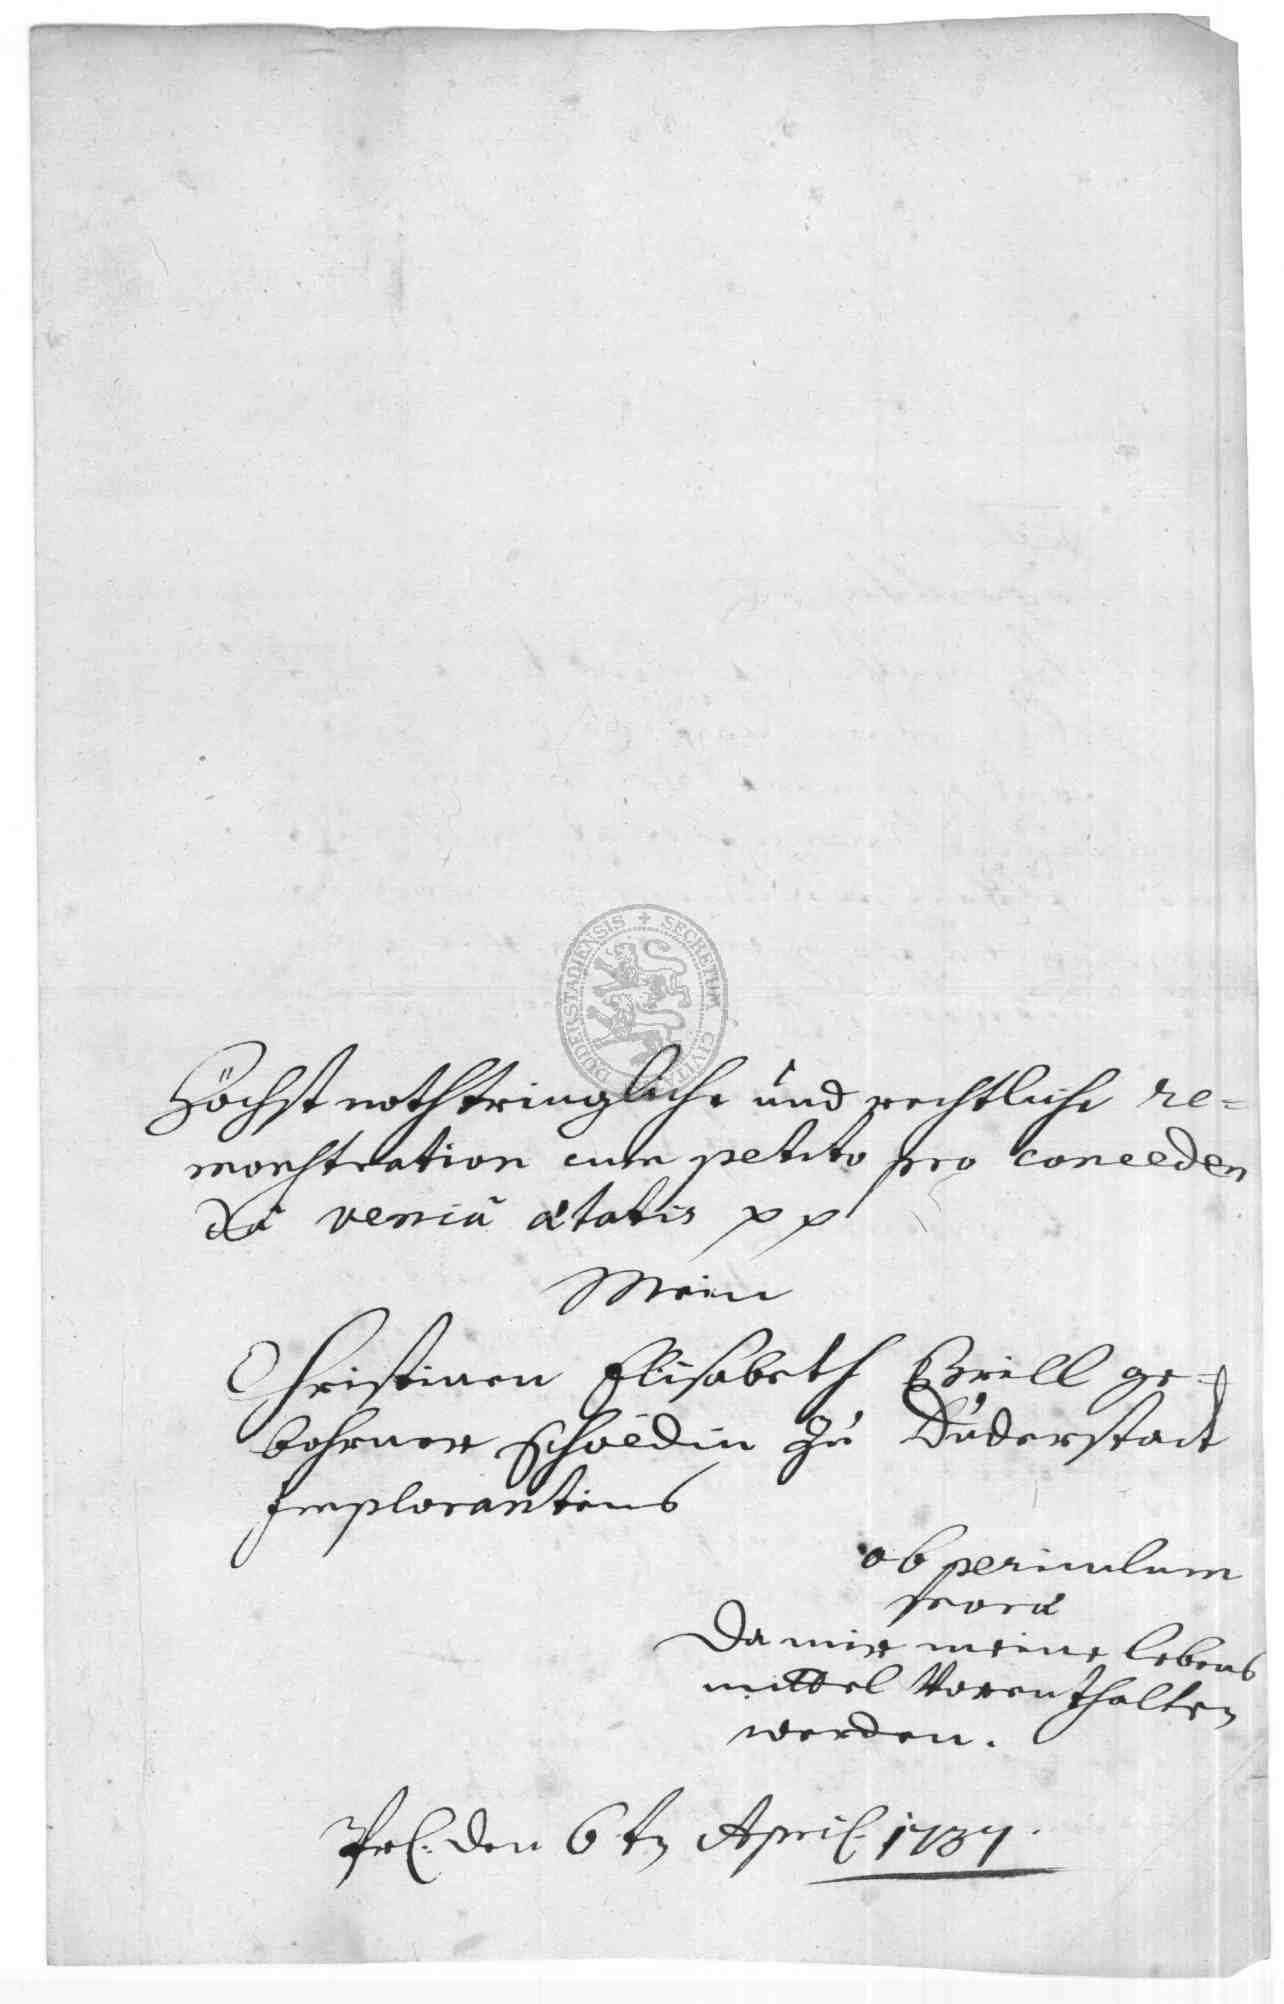 SECRETUM CIVITA DUDERSTADIENSIS
Höchst nothtringliche und rechtliche re=
monstration cum petito pro conceden
dâ veniâ ætatis pp
Mein
Christinen Elisabeth Brill ge=
bohrner zu Duderstadt
Implorantens
ob periculum
moræ
Da mir meine lebens
mittel Vorenthalten
werden.
den 6 tn April. 1737.